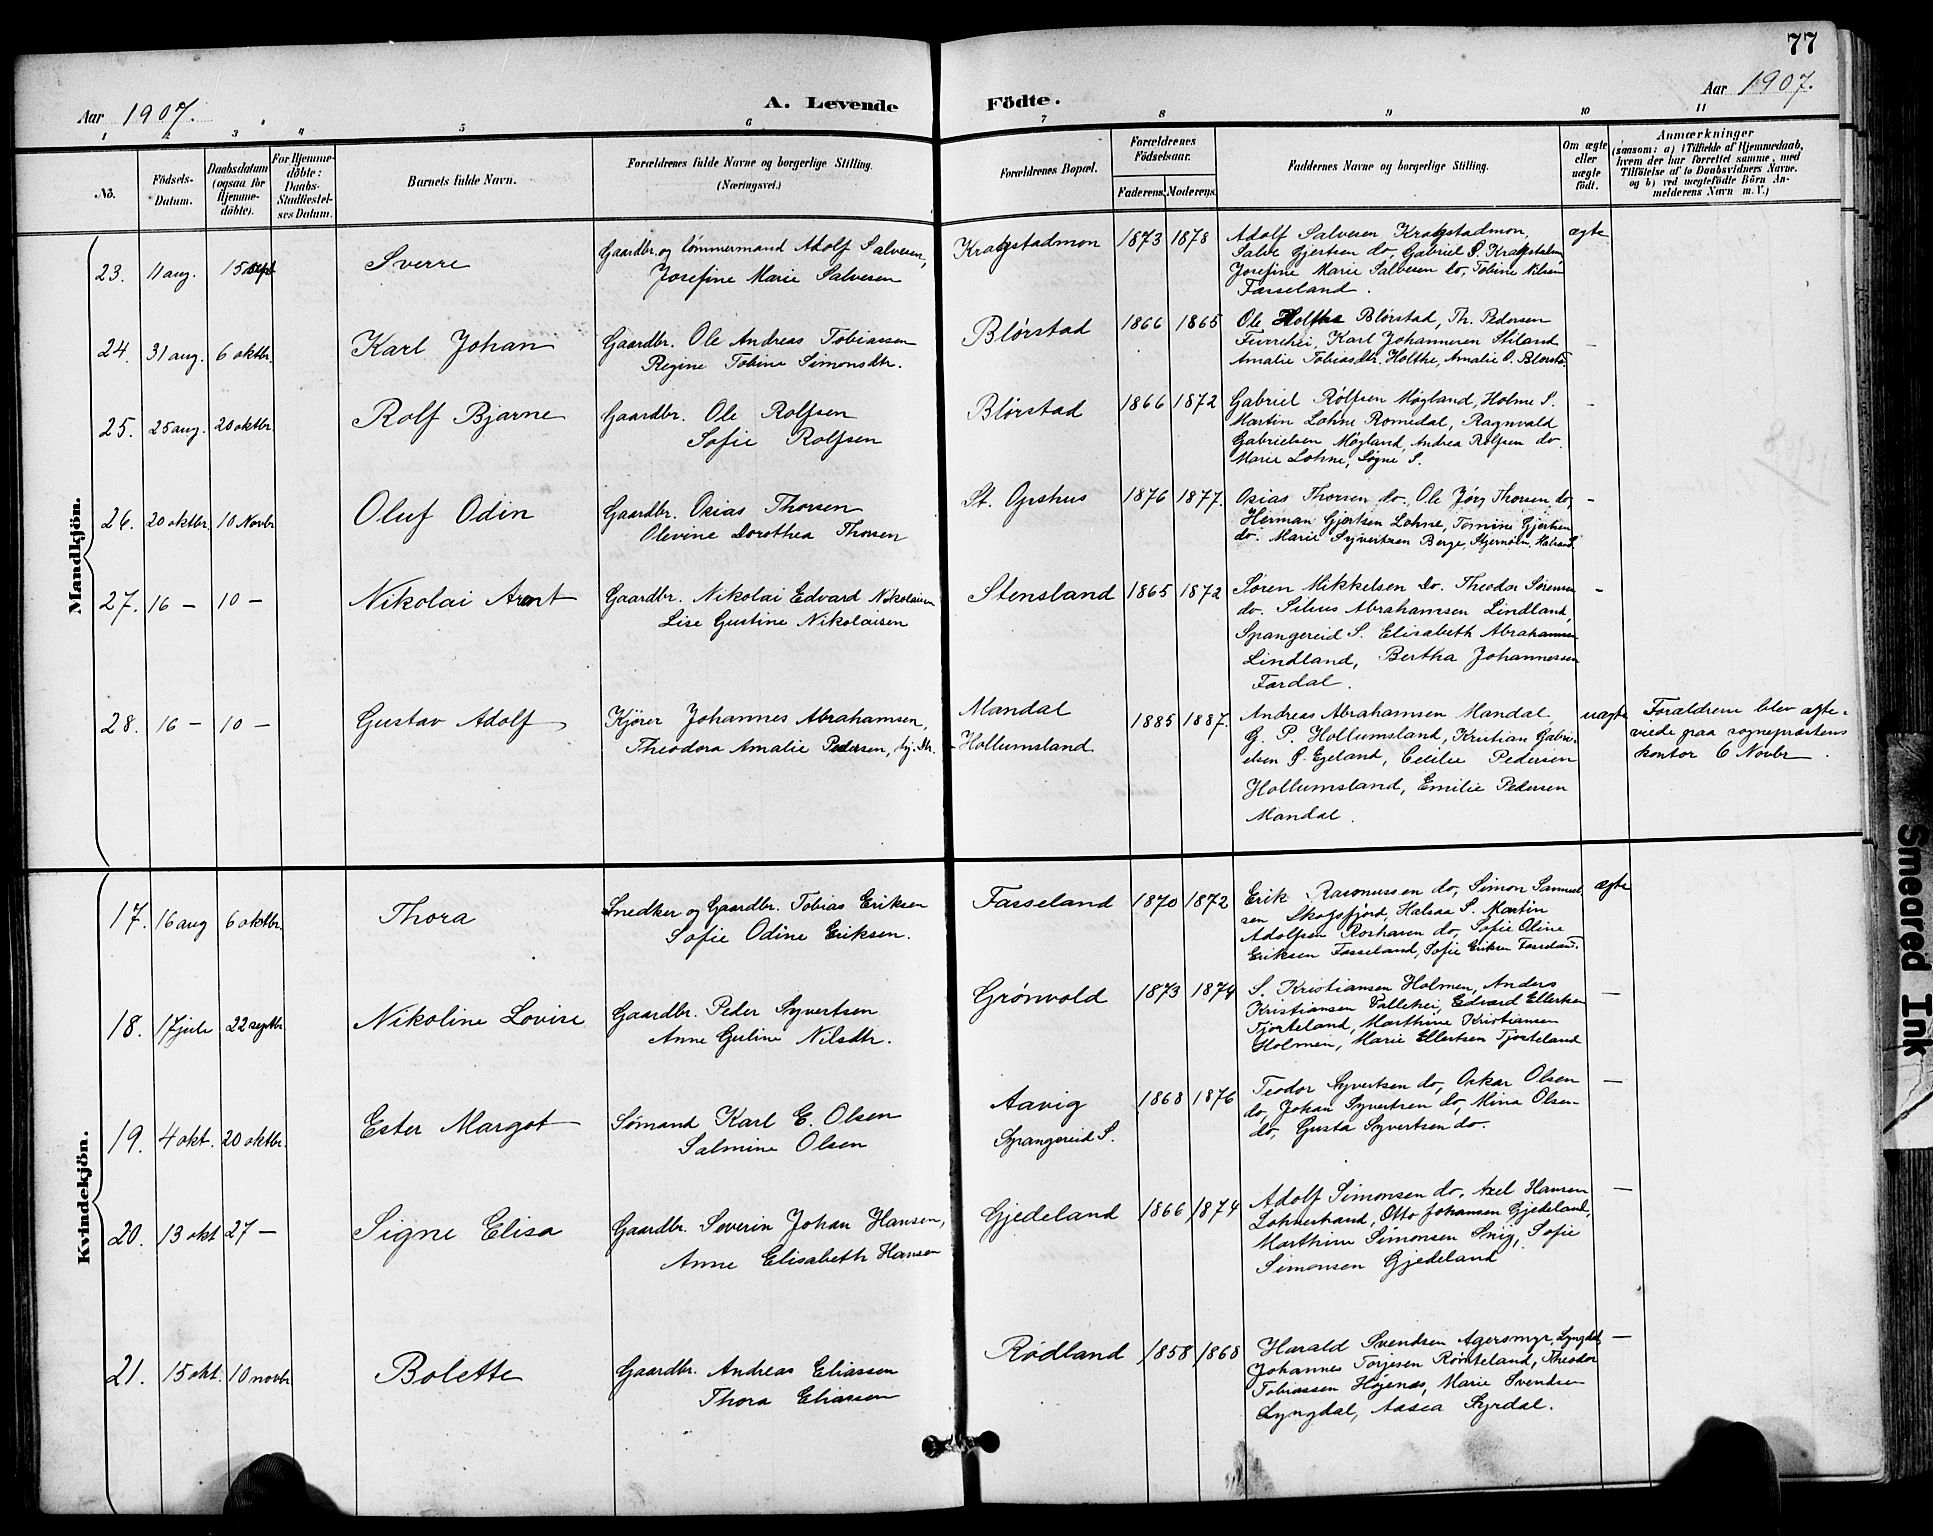 77
Aar 1907. A. Levende Födte. Aar 1907.
1 2 3 4 5 6 7 8 9 10 11
No. Födsels-Datum. Daabsdatum (ogsaa for Hjemmedöbte). For Hjemmedöbte: Daabs-Stadfæstelses Datum. Barnets fulde Navn. Forældrenes fulde Navne og borgerlige Stilling. (Næringsvei.) Forældrenes Bopæl. Forældrenes Födselsaar. Faderens. Moderens. Faddernes Navne og borgerlige Stilling. Om ægte eller uægte födt. Anmærkninger (saasom: a) i Tilfælde af Hjemmedaab, hvem der har forrettet samme, med Tilföielse af to Daabsvidners Navne, og b) ved uægtefödte Börn Anmelderens Navn m. V.)
Mandkjön.
23. 11 aug. 15 sept Sverre Gaardbr. og tømmermand Adolf Salvesen, Kragstadmon 1873 1878 Adolf Salvesen Kragstadmon, ægte
Josefine Marie Salvesen Salve Gjertsen do, Gabriel S. Kragstadm
Josefine Marie Salvesen do, Tobine Nilsen
Fasseland.
24. 31 aug. 6 oktbr. Karl Johan Gaardbr. Ole Andreas Tobiassen Blørstad 1866 1865 Ole Blørstad, Th. Pedersen –
Regine Tobine Simonsdtr. Karl Johannesen Stiland
Amalie Tobiasdtr. Holthe, Amalie O. Blørsta.
25. 25 aug. 20 oktbr Rolf Bjarne Gaardbr. Ole Rolfsen Blørstad 1866 1872 Gabriel Rølfsen Møgland, Holme S. –
Sofie Rolfsen Martin Lohne Romedal, Ragnvald
Gabrielsen Møgland, Andrea Rolfsen do.
Marie Lohne, Søgne S.
26. 20 oktbr. 10 Novbr Oluf Odin Gaardbr. Osias Thorsen St. Opshus 1876 1877. Osias Thorsen do, Ole Jørg Thorsen do, –
Olevine Dorothea Thorsen Herman Gjertsen Lohne, Tomine Gjertsen
do. Marie Syvertsen Berge, Halsaa S.
27. 16 – 10 – Nikolai Arent Gaardbr. Nikolai Edvard Nikolaisen Stensland 1865 1872 Søren Mikkelsen do. Theodor Sørensen –
Lise Gustine Nikolaisen do. Silius Abrahamsen Lindland,
Spangereid S. Elisabeth Abrahamsen
Lindland, Bertha Johannessen
Fardal.
28. 16 – 10 – Gustav Adolf Kjører Johannes Abrahamsen, Mandal 1885 1887. Andreas Abrahamsen Mandal, uægte Forældrene blev ægte-
Theodora Amalie Pedersen, Hollumsland G. P. Hollumsland, Kristian Gabri- viede paa sognepræstens
elsen S. Egeland, Cecilie Pedersen kontor 6 Novbr.
Hollumsland, Emilie Pedersen
Mandal.
Kvindekjön.
17. 16 aug 6 oktbr. Thora Snedker og Gaardbr. Tobias Eriksen Fasseland 1870 1872 Erik Rasmussen do, Simon Samuel ægte
Sofie Odine Eriksen. sen Skogsfjord, Halsaa S. Martin
Adolfsen Roshaven do, Sofie Oline
Eriksen Fasseland, Sofie Eriksen Fasseland.
18. 17 jule 22 septbr Nikoline Lovise Gaardbr. Peder Syvertsen Grønvold 1873 1874 S. Kristiansen Holmen, Anders –
Anne Guline Nilsdtr. Kristiansen Edvard Ellertsen
Tjorteland, Marthine Kristiansen
Holmen, Marie Ellertsen Tjorteland
19. 4 okt. 20 oktbr. Ester Margot Sømand Karl E. Olsen Aavig 1868 1876 Teodor Syvertsen do, Oskar Olsen –
Salmine Olsen Spangereid S. do, Johan Syvertsen do, Mina Olsen
do, Gusta Syvertsen do.
20. 13 okt 27 – Signe Elisa Gaardbr. Severin Johan Hansen, Gjedeland 1866 1874 Adolf Simonsen do, Axel Hansen –
Anne Elisabeth Hansen Lohnestrand, Otto Johansen Gjedeland,
Marthine Simonsen Snig, Sofie
Simonsen Gjedeland
21. 15 okt. 10 novbr Bolette Gaardbr. Andreas Eliassen Rødland 1858 1868 Harald Svendsen Agersmyr, Lyngdal, –
Thora Eliassen Johannes Torjesen Rømteland, Theodor
Tobiassen Højenæs, Marie Svendsen
Lyngdal, Aasea Syrdal.
Smeared Ink